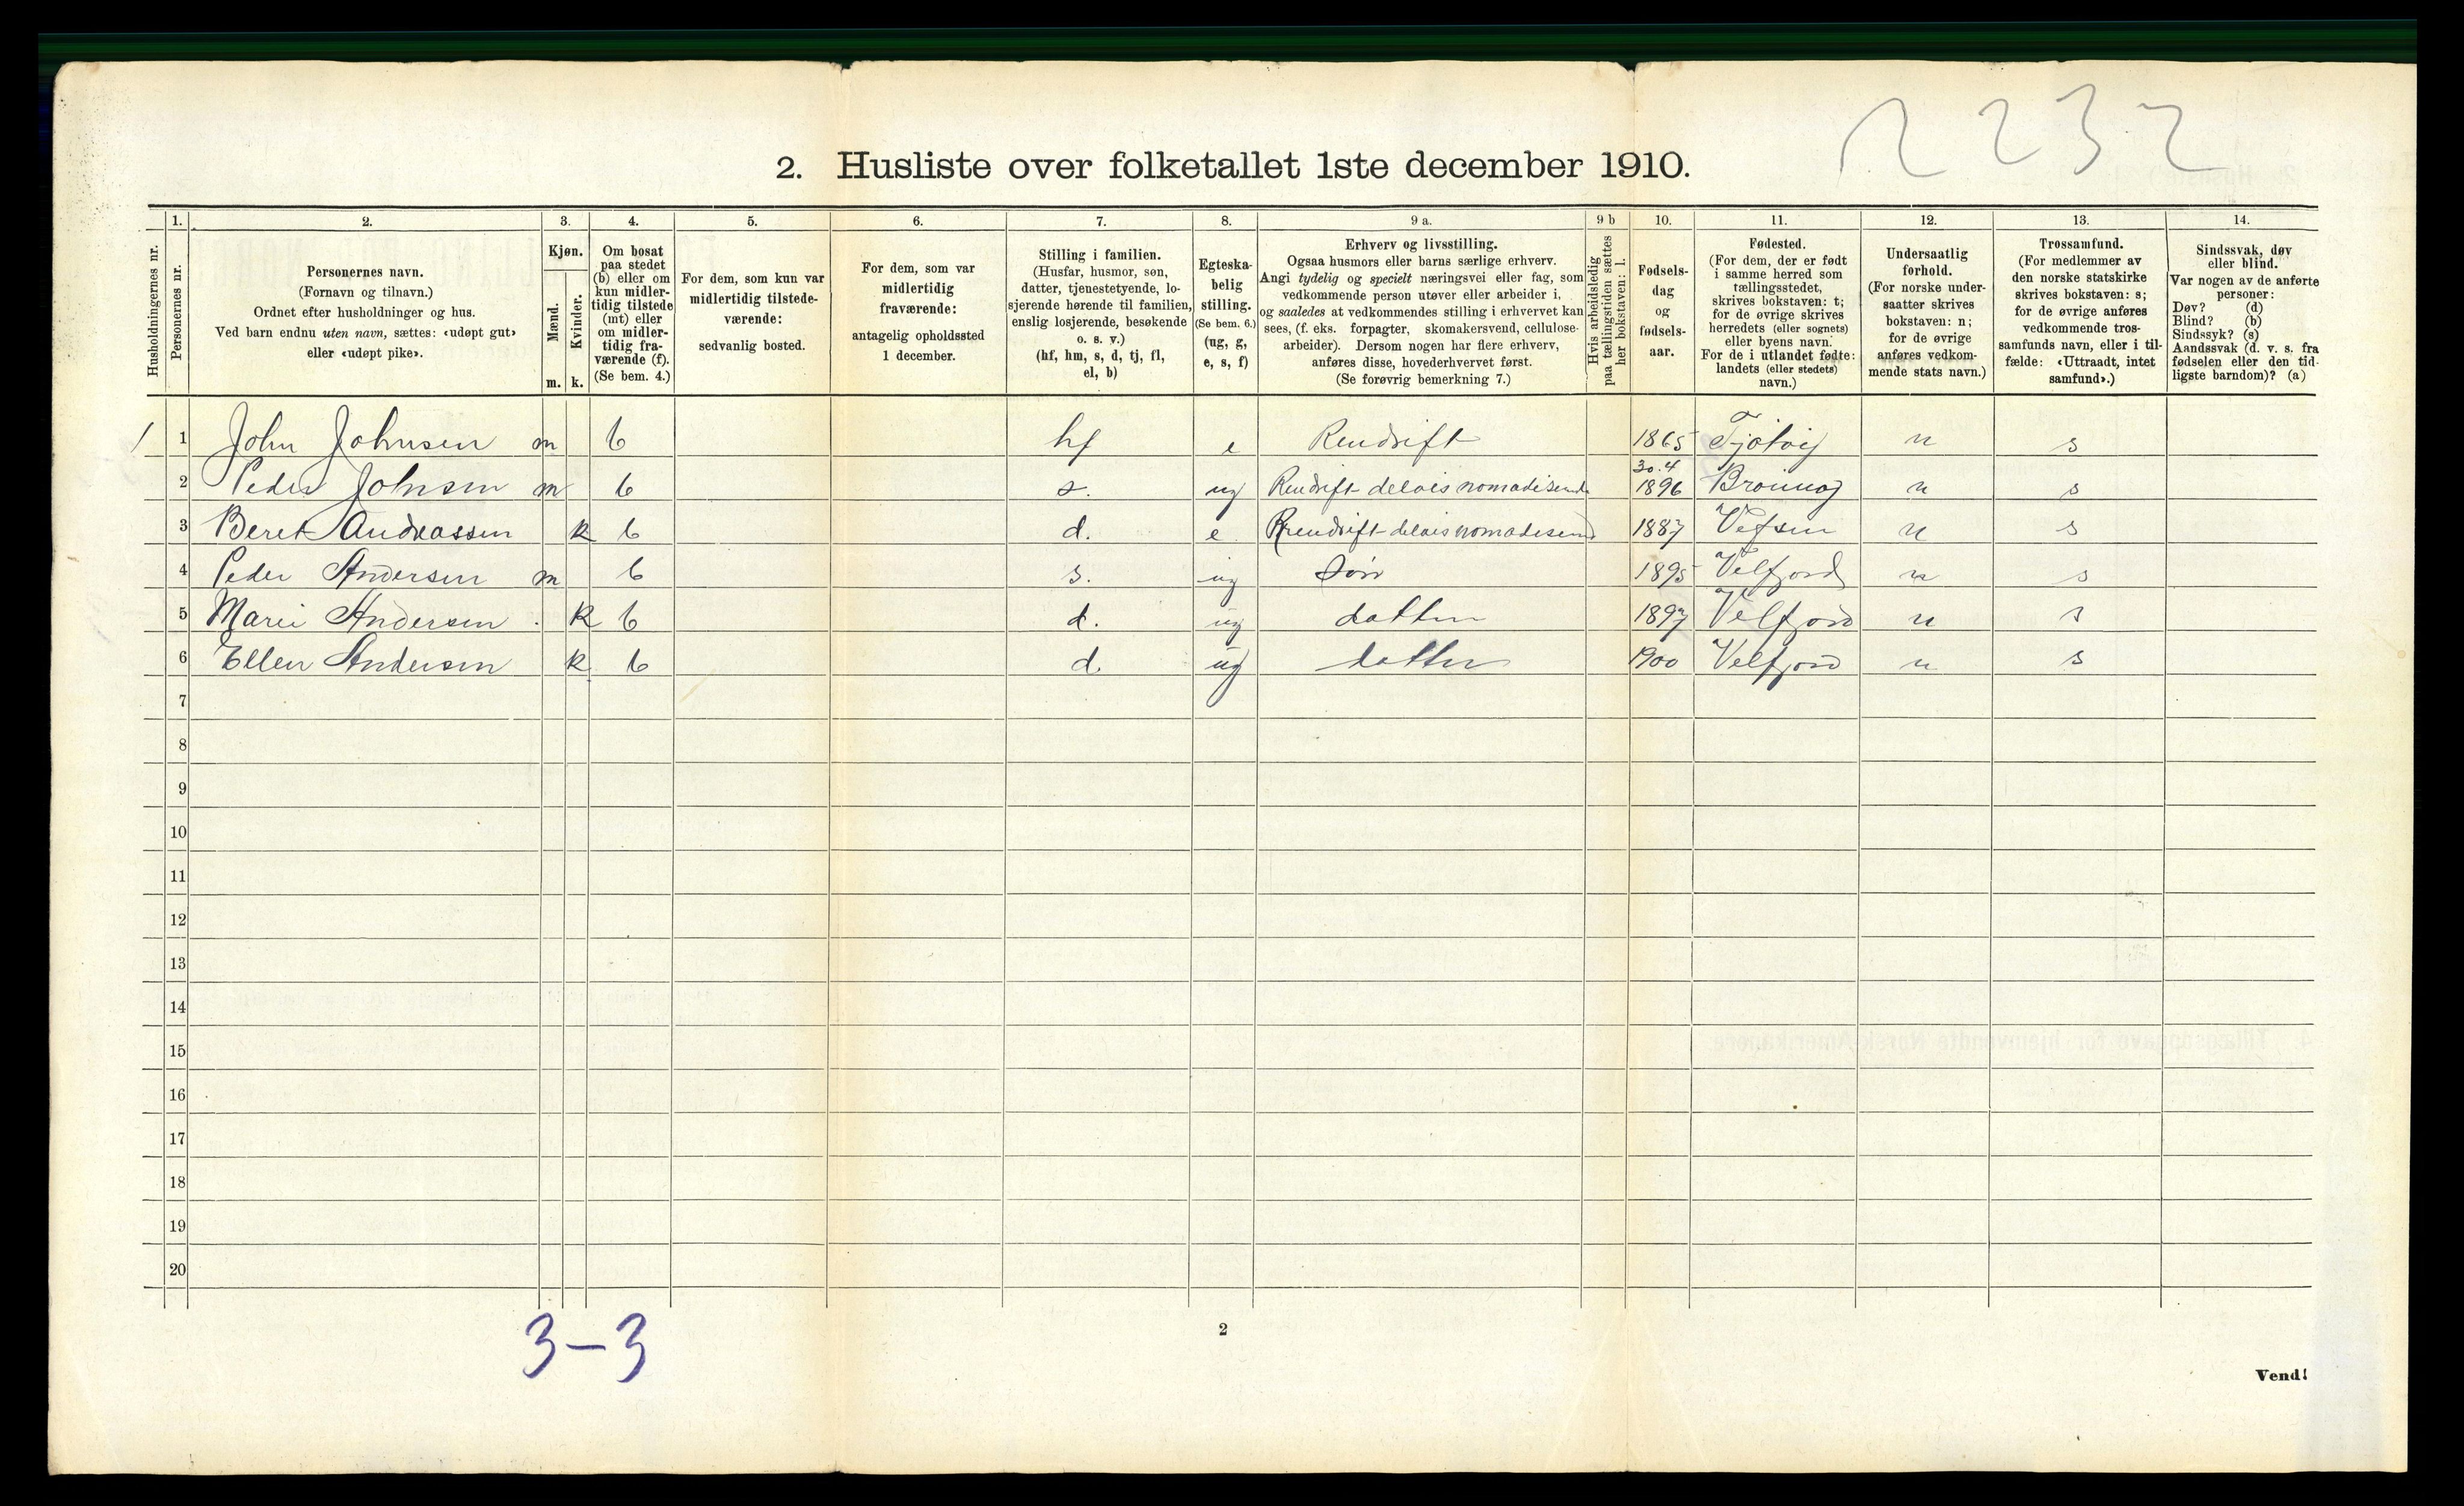 2232
2. Husliste over folketallet 1ste december 1910.
Husholdningernes nr.
1.
Personernes nr.
2.
Personernes navn.
(Fornavn og tilnavn.)
Ordnet efter husholdninger og hus.
Ved barn endnu uten navn, sættes: «udøpt gut»
eller «udøpt pike».
3.
Kjøn.
Mænd.
Kvinder.
m. k.
4.
Om bosat
paa stedet
(b) eller om
kun midler-
tidig tilstede
(mt) eller
om midler-
tidig fra-
værende (f).
(Se bem. 4.)
5.
For dem, som kun var
midlertidig tilstede-
værende:
sedvanlig bosted.
6.
For dem, som var
midlertidig
fraværende:
antagelig opholdssted
1 december.
7.
Stilling i familien.
(Husfar, husmor, søn,
datter, tjenestetyende, lo-
sjerende hørende til familien,
enslig losjerende, besøkende
o. s. v.)
(hf, hm, s, d, tj, fl,
el, b)
8.
Egteska-
belig
stilling.
(Se bem. 6.)
(ug, g,
e, s, f)
9 a.
Erhverv og livsstilling.
Ogsaa husmors eller barns særlige erhverv.
Angi tydelig og specielt næringsvei eller fag, som
vedkommende person utøver eller arbeider i,
og saaledes at vedkommendes stilling i erhvervet kan
sees, (f. eks. forpagter, skomakersvend, cellulose-
arbeider). Dersom nogen har flere erhverv,
anføres disse, hovederhvervet først.
(Se forøvrig bemerkning 7.)
9 b
Hvis arbeidsledig
paa tællingstiden sættes
her bokstaven: l.
10.
Fødsels-
dag
og
fødsels-
aar.
11.
Fødested.
(For dem, der er født
i samme herred som
tællingsstedet,
skrives bokstaven: t;
for de øvrige skrives
herredets (eller sognets)
eller byens navn.
For de i utlandet fødte:
landets (eller stedets)
navn.)
12.
Undersaatlig
forhold.
(For norske under-
saatter skrives
bokstaven: n;
for de øvrige
anføres vedkom-
mende stats navn.)
13.
Trossamfund.
(For medlemmer av
den norske statskirke
skrives bokstaven: s;
for de øvrige anføres
vedkommende tros-
samfunds navn, eller i til-
fælde: «Uttraadt, intet
samfund».)
14.
Sindssvak, døv
eller blind.
Var nogen av de anførte
personer:
Døv? (d)
Blind? (b)
Sindssyk? (s)
Aandssvak (d. v. s. fra
fødselen eller den tid-
ligste barndom)? (a)
1 1 John Johnsen m b hf e Rendrift 1865 Tjøtvig n s
30.4
2 Peder Johnsen m b s. ug Rendrift delvis nomadisende 1896 Brønnøy n s
3 Beret Andreassen k b d. e Rendrift delvis nomadisend 1887 Vefsen n s
4 Peder Andersen m b s. ug Søn 1895 Velfjord n s
5 Marie Andersen k b d. ug datter 1897 Velfjord n s
6 Ellen Andersen k b d. ug datter 1900 Velfjord n s
7
8
9
10
11
12
13
14
15
16
17
18
19
20
3-3
2
Vend!